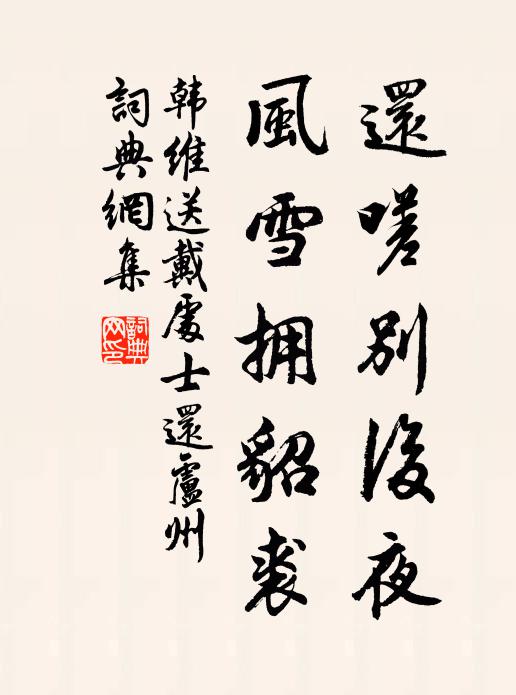 還嗟別後夜
風雪拥貂裘
韩維送戴處士還廬州
詞典網集
詞典网印